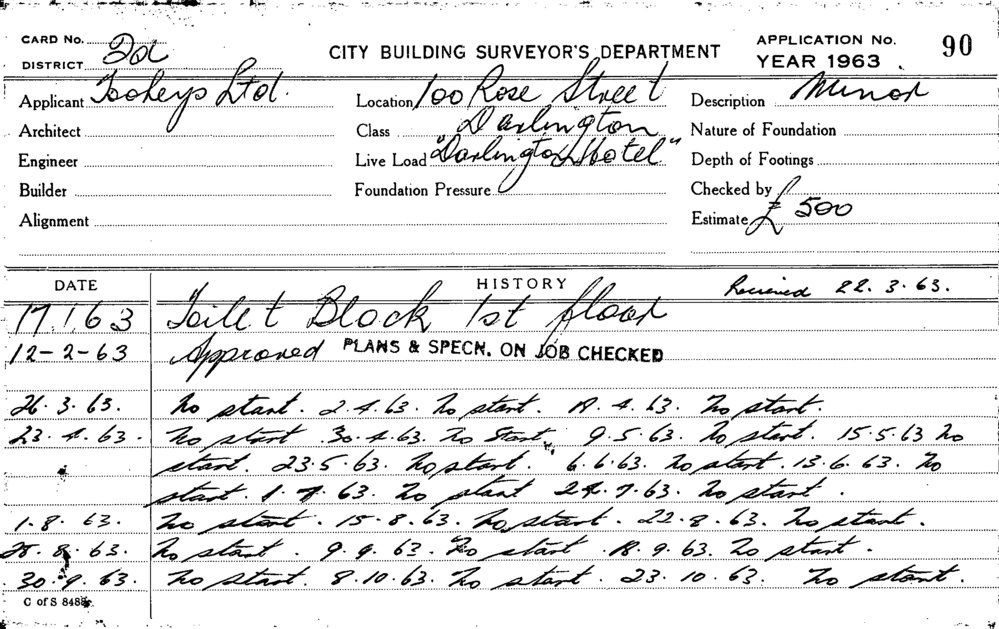 CARD No. 2d CITY BUILDING SURVEYOR'S DEPARTMENT APPLICATION No. 90
DISTRICT YEAR 1963
Applicant Tooheys Ltd. Location 100 Rose Street Description Minor
Architect Class Darlington Nature of Foundation
Engineer Live Load "Darlington Hotel" Depth of Footings
Builder Foundation Pressure Checked by
Alignment Estimate £ 500
DATE HISTORY Received 22.3.63.
17.1.63 Toilet Block 1st floor
12-2-63 Approved PLANS & SPECN. ON JOB CHECKED
26.3.63. No start. 2.4.63. No start. 4.63. No start.
23.4.63. No start 30.4.63. No start. 9.5.63. No start. 15.5.63 No
start. 23.5.63. No start. 6.6.63. No start. 13.6.63. No
start. 1.7.63. No start 24.7.63. No start.
1.8.63. No start. 15.8.63. No start. 22.8.63. No start.
28.8.63. No start. 9.9.63. No start. 18.9.63. No start.
30.9.63. No start. 8.10.63. No start. 23.10.63. No start.
C of S